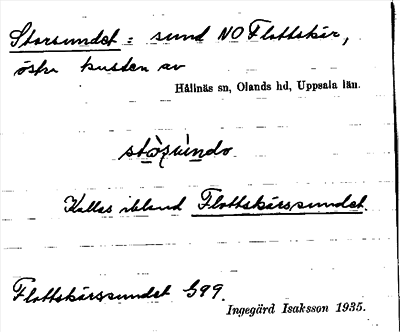 Storsundet : sund NO Flottskär,
östra kusten av
Hållnäs sn, Olands hd, Uppsala län.
Kallas ibland Flottskärssundet.
Flottskärssundet G99.
Ingegärd Isaksson 1935.